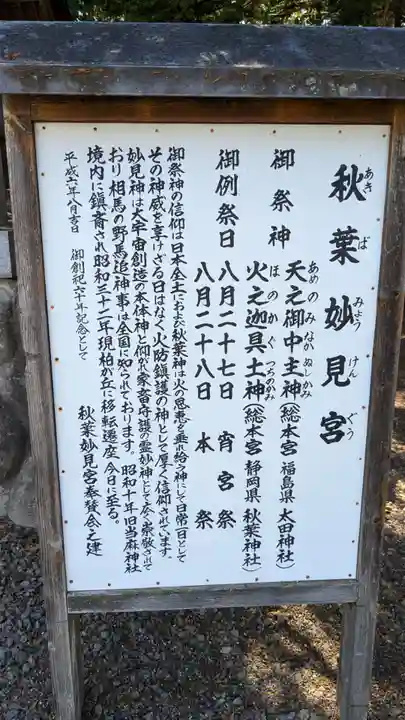 秋葉妙見宮
あき ば みょう けん ぐう
御祭神 天之御中主神(総本宮 福島県 太田神社)
あめ の み なか ぬし かみ
火之迦具土神(総本宮 静岡県 秋葉神社)
ほ の か ぐ つちのかみ
御例祭日 八月二十七日 宵宮祭
八月二十八日 本祭
御祭神の信仰は日本全土におよび秋葉神は火の恩恵を垂れ給う神にして日常一日として
その神威を享けざる日はなく火防鎮護の神として厚く信仰されています。
妙見神は大宇宙創造の本体神と仰がれ家畜守護の霊妙神として広く崇敬されて
おり相馬の野馬追神事は全国に知られております。昭和十年旧当麻神社
境内に鎮斎され昭和三十二年現柏が丘に移転遷座今日に至る。
平成六年八月吉日 御創祀六十年記念として
秋葉妙見宮奉賛会之建